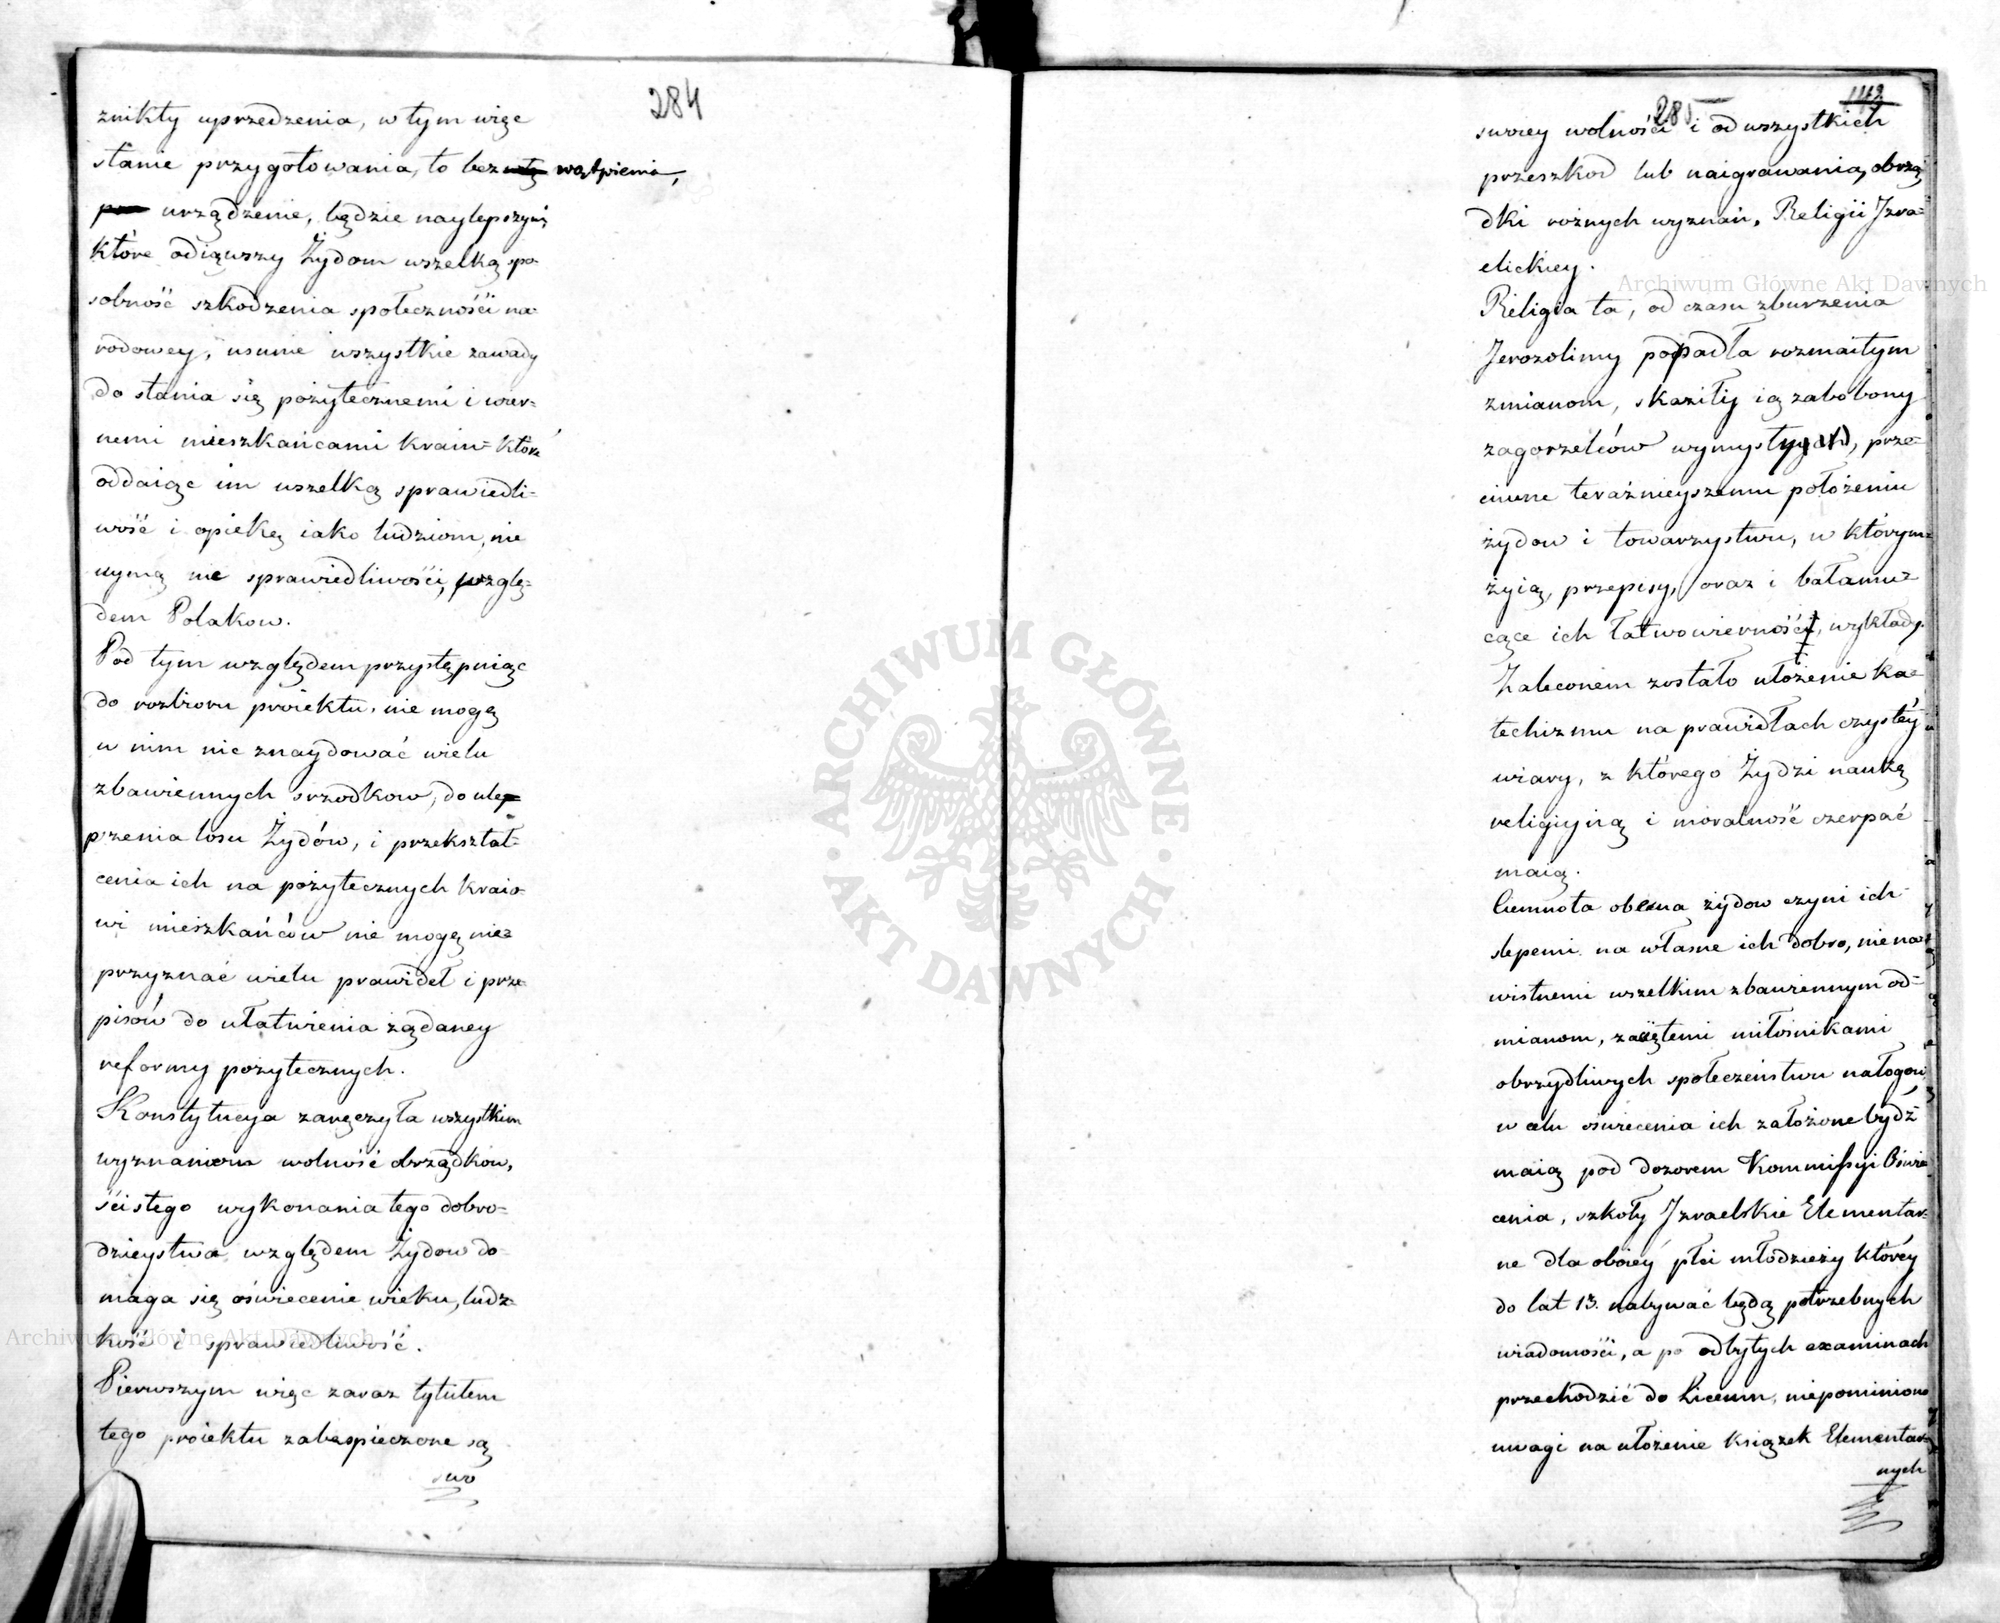 284
znikły uprzedzenia, w tym więc
stanie przygotowania, to bez wątpienia,
urządzenie, będzie naylepszym,
które odiąwszy Żydom wszelką spo-
sobność szkodzenia społeczności na-
rodowey, usunie wszystkie zawady
do stania się pożytecznemi i wier-
nemi mieszkańcami kraiu= które
oddaiąc im wszelką sprawiedli-
wość i opiekę iako ludziom, nie
uymą nic sprawiedliwości, wzglę-
dem Polakow.
Pod tym względem przystępuiąc
do rozbioru proiektu, nie mogę
w nim nie znaydować wielu
zbawiennych srzodkow, do ulep
przenia losu Żydów, i przekształ-
cenia ich na pożytecznych kraio-
wi mieszkańców nie mogę nie=
przyznać wielu prawideł i prze-
pisów do ułatwienia żądaney
reformy pożytecznych.
Konstytucya zaręczyła wszystkim
wyznaniom wolność obrządkow,
ścisłego wykonania tego dobro-
dzieystwa względem Żydow do-
maga się oświecenie wieku, ludz-
kość i sprawiedliwość.
Pierwszym więc zaraz tytułem
tego proiektu zabespieczone są
swo
285
142
swoiey wolności i od wszystkich
przeszkod lub naigrawania, obrzą-
dki rożnych wyznań, Religii Izra-
elickiey.
Religia ta, od czasu zburzenia
Jerozolimy popadła rozmaitym
zmianom, skaziły ią zabobony
zagorzelców wymysły, prze-
ciwne teraźnieyszemu położeniu
żydow i towarzystwu, w którym-
żyią, przepisy, oraz i bałamu=
cące ich łatwowierność, wykłady.
Zaleconem zostało ułożenie ka-
techizmu na prawidłach czystéy
wiary, z którego Żydzi naukę
religijną i moralność czerpać
maią.
Ciemnota obecna żydow czyni ich
slepemi na własne ich dobro, niena-
wistnemi wszelkim zbawiennym od-
mianom, zawziętemi miłośnikami
obrzydliwych społeczeństwu nałogow
w celu oświecenia ich założone bydź
maią pod dozorem Kommissyi Oświe
cenia, szkoły Izraelskie Elementar-
ne dla oboiéy płci młodzieży któréy
do lat 13. nabywać będą potrzebnych
wiadomości, a po odbytych examinach
przechodzić do Liceum, niepominiono
uwagi na ułożenie książek Elementar-
nych
Archiwum Główne Akt Dawnych
Archiwum Główne Akt Dawnych
ARCHIWUM GŁÓWNE
AKT DAWNYCH